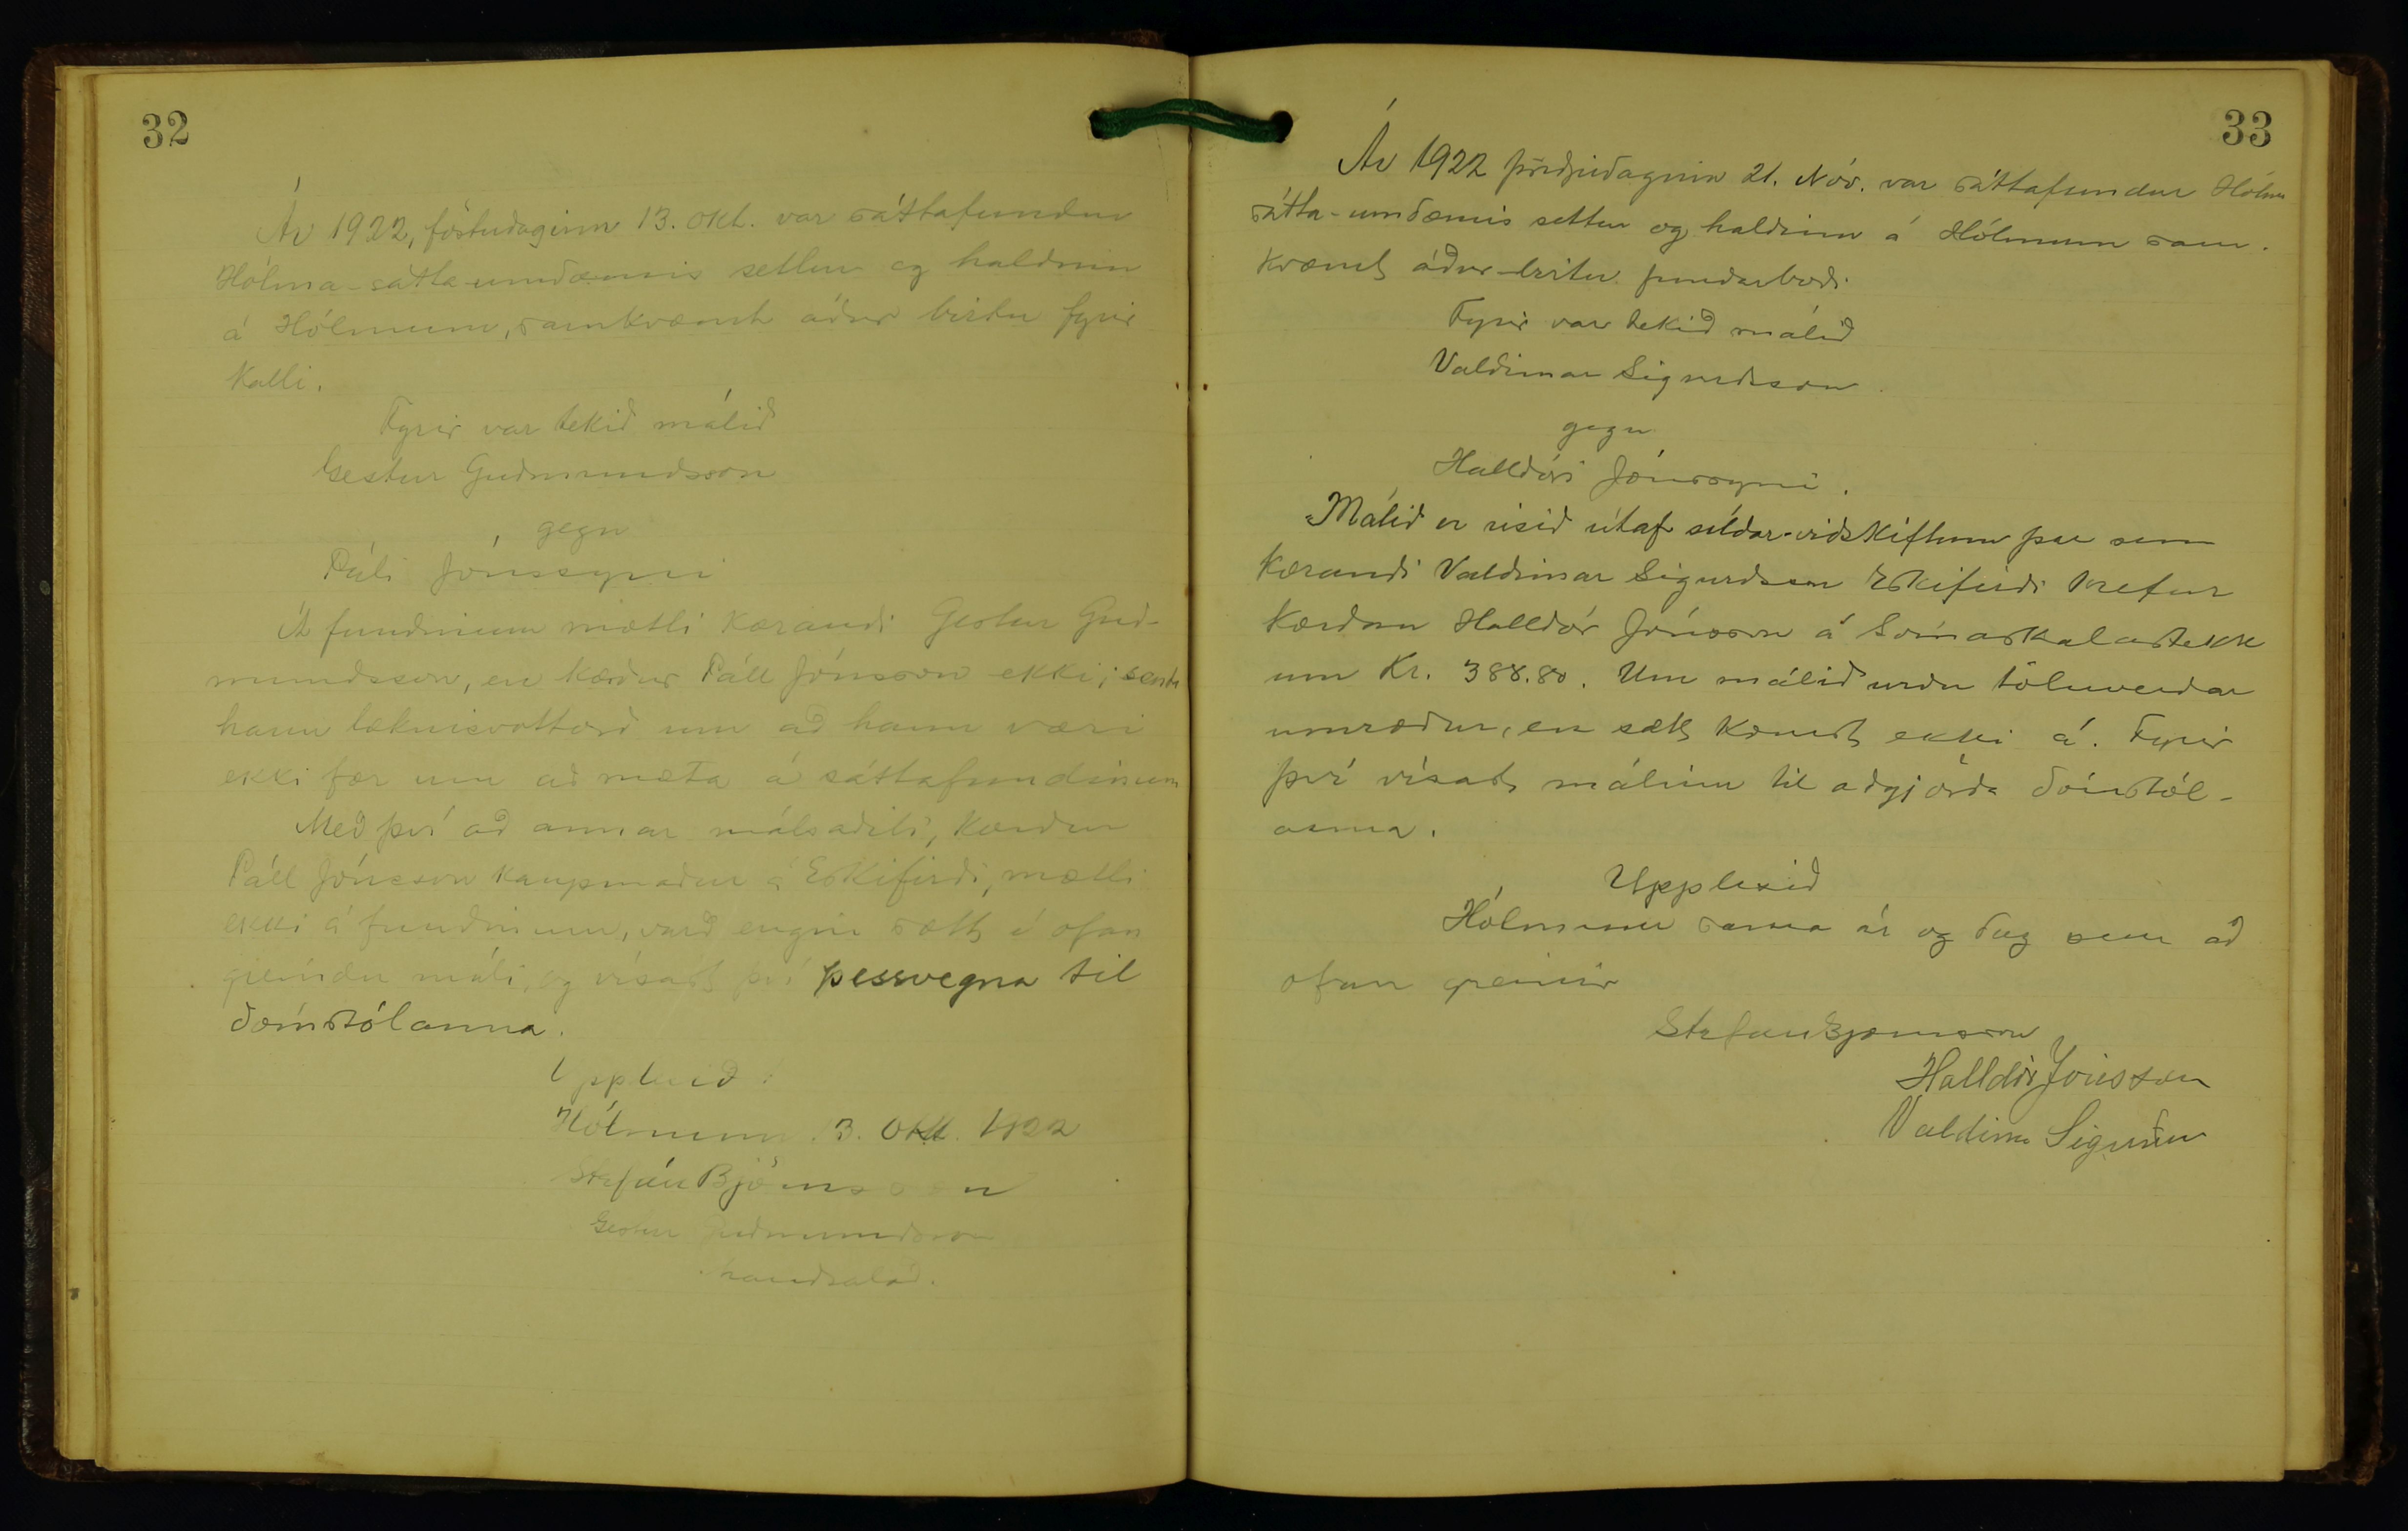 32
Ár 1922, föstudaginn 13. okt. var sáttafundur
Hólma-sátta-umdæmis settur og haldinn
á Hólmum, samkvæmt áður birtu fyrir
kalli.
Fyrir var tekið málið
Gestur Guðmundsson
gegn
Páli Jónssyni
Á fundinum mætti kærandi Gestur Guð-
mundsson, en kærður Páll Jónsson ekki; sendi
hann læknisvottorð um að hann væri
ekki fær um að mæta á sáttafundinum
Með því að annar málsaðili, kærður
Páll Jónsson kaupmaður á Eskifirði, mætti
ekki á fundinum, varð engin sætt í ofan
greindu máli, og vísast því þessvegna til
dómstólanna.
Upplesið
Hólmum 13. Okt. 1922
Stefán Björnsson
Gestur Guðmundsson
handsalað.
33
Ár 1922 þriðjudaginn 21. Nóv. var sáttafundur Hólma
sátta-umdæmis settur og haldinn á Hólmum sam-
kvæmt áður birtu fundarboði.
Fyrir var tekið málið
Valdimar Sigurðsson
gegn
Halldóri Jónssyni.
Málið er risið útaf síldar-viðskiftum þar sem
kærandi Valdimar Sigurðsson Eskifirði krefur
kærðan Halldór Jónsson á Svínaskálastekk
um Kr. 388.80. Um málið urðu töluverðar
umræður, en sætt komst ekki á. Fyrir
því vísast málinu til aðgjörða dómstól-
anna.
Upplesið
Hólmum sama ár og dag sem að
ofan greinir
Stefán Björnsson
Halldór Jónsson
Valdimar Sigurðsson